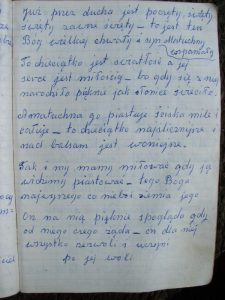 Już przez ducha jest poczęty, święty
święty zawsze święty – to jest ten
Bóg wielkiej chwały i syn Matuchny
wspaniały
To dzieciątko jest szczatłość a jej
serce jest miłością – bo gdy się z niej
narodziło pięknie jak słońce świeciło.
A matuchna go piastuje ściska mile i
całuje – to dzieciątko najśliczniejsze i
nad balsam jest wonniejsze.
Tak i my mamy miłować gdy ją
widzimy piastować – tego Boga
majesznego co niebo i ziemia jego
On na nią pięknie spogląda gdy
od niego czego rząda – on dla niej
wszystko zezwoli i uczyni
po jej woli